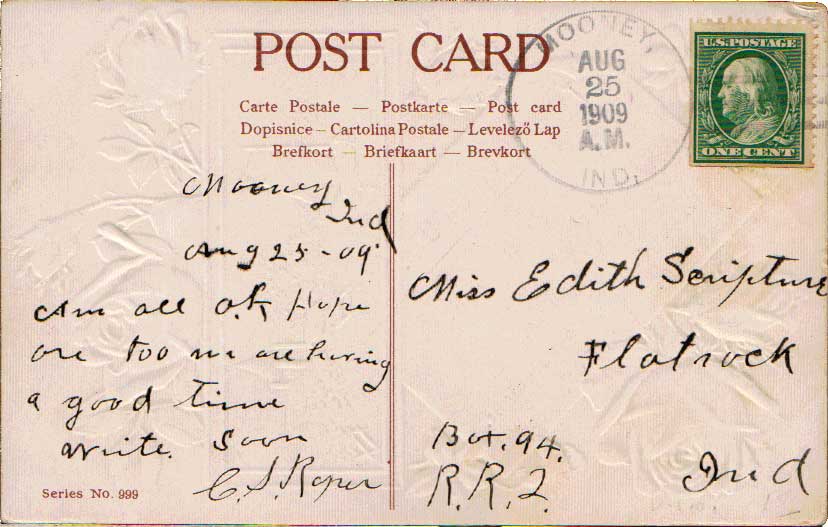 POST CARD
Carte Postale — Postkarte — Post card
Dopisnice – Cartolina Postale – Levelező Lap
Brefkort — Briefkaart — Brevkort
MOONEY,
AUG
25
1909
A.M.
IND.
U.S. POSTAGE
ONE CENT
Mooney
Ind
Aug 25 - 09
Am all O.K Hope
are too we are having
a good time
write. Soon
C. S. Roper
Series No. 999
Miss Edith Scripture
Flatrock
Box. 94.
R. R. 2.
Ind